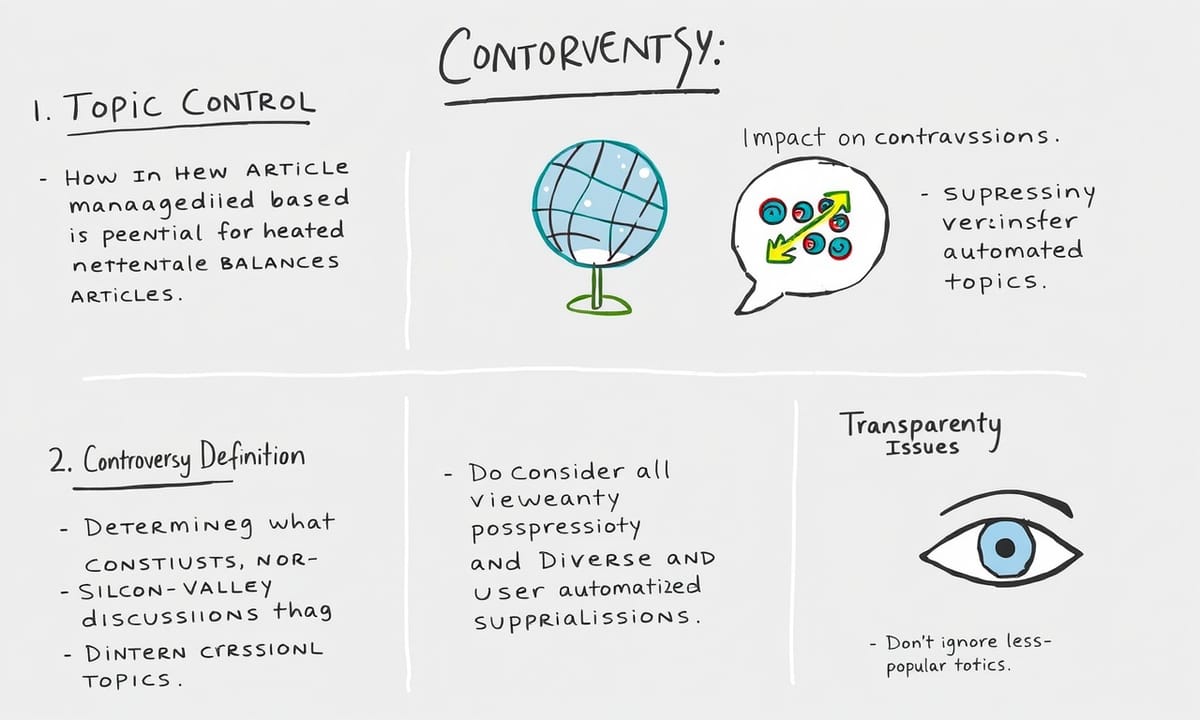 CONTORVENTSY:
1. TOPIC CONTROL
- HOW IN HEW ARTICLE
manaagediied based
is peential for heated
nettentale BALANCES
ARTICLES.
Impact on contravssions.
- SUPRESSINY
verinster
automated
topics.
2. Controversy Definition
- DETERMINEG what
CONSTIUSTS, NOR-
- SILCON-VALLEY
discussiions thag
- DINTERN CRESSIONL
TOPICS.
- Do consider all
vieweanty
posspressioty
and Diverse AND
user automatized
suppprialissions.
Transparenty
Issues
- Don't ignore less-
popular totics.